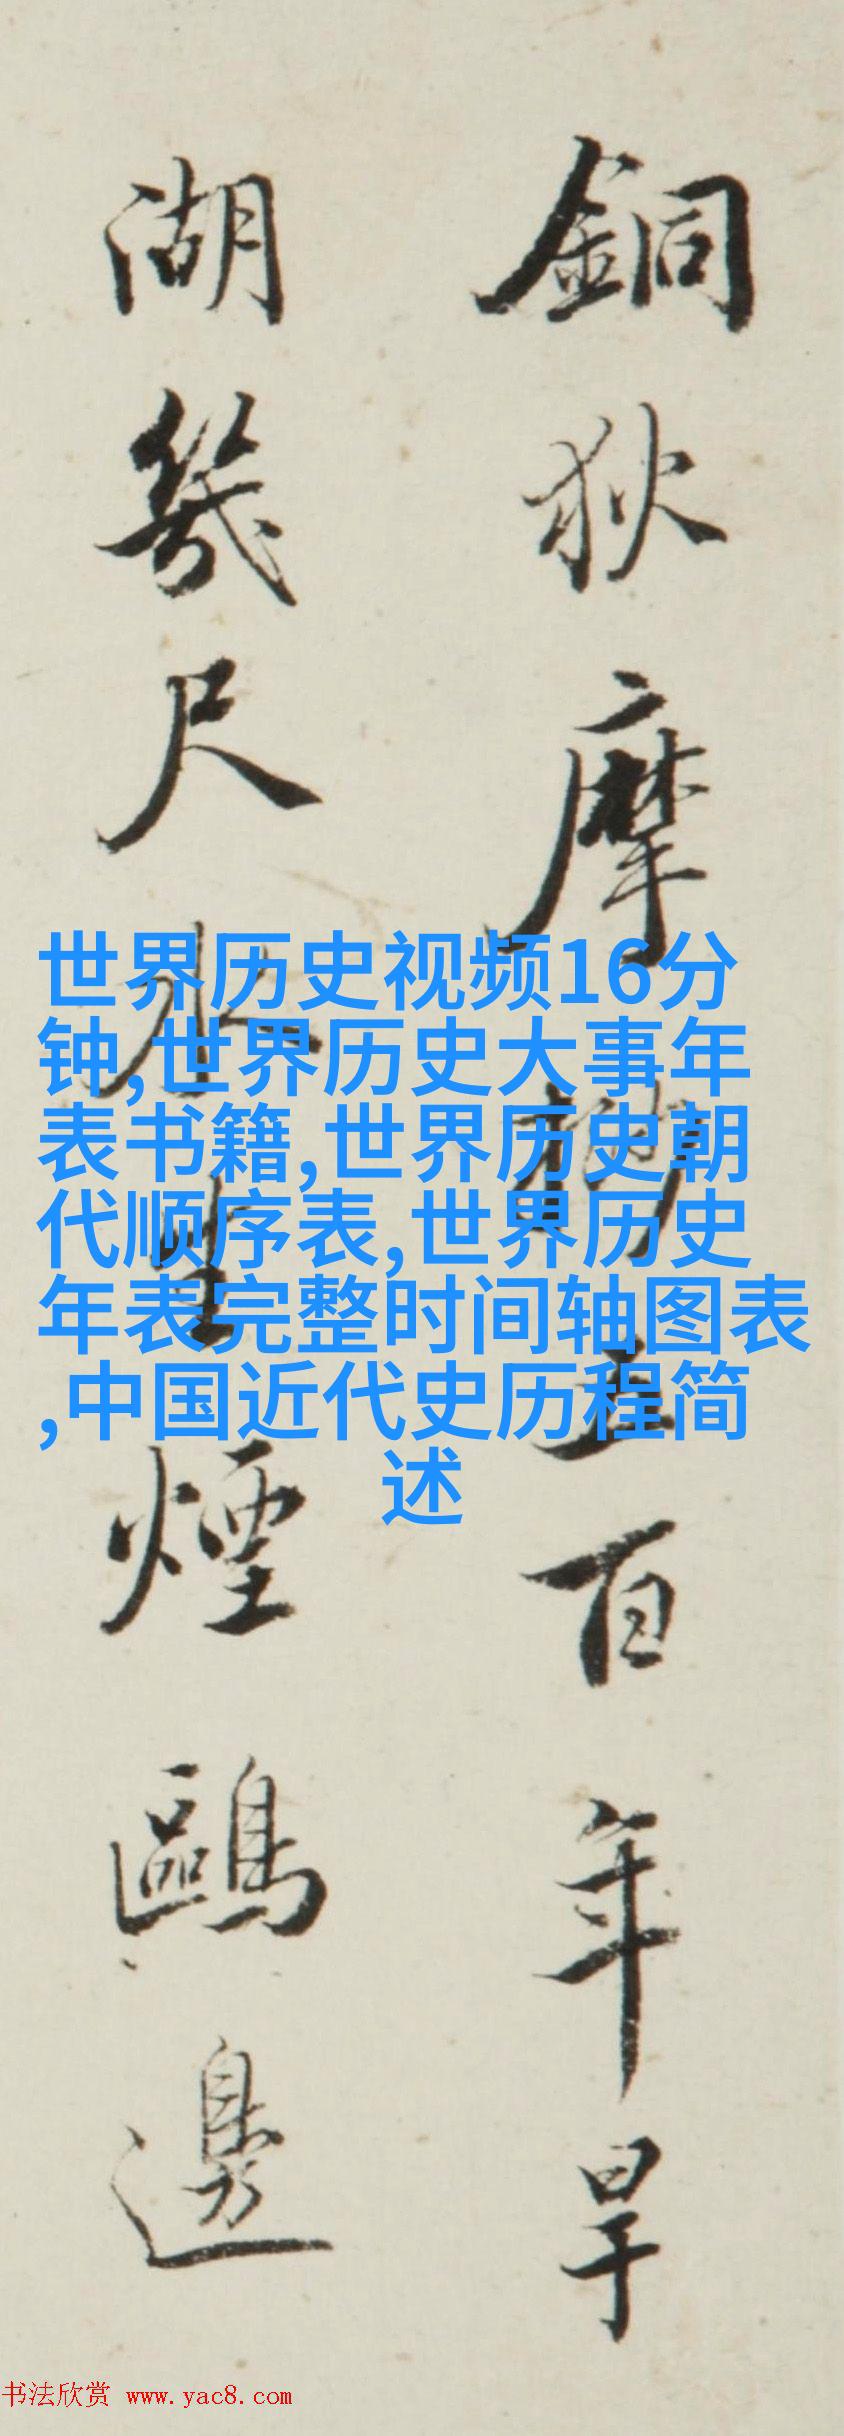 銅狄摩挲五百年旱
湖幾尺水生煙鷗邊
世界历史视频16分
钟,世界历史大事年
表书籍,世界历史朝
代顺序表,世界历史
年表完整时间轴图表
,中国近代史历程简
述
书法欣赏 www.yac8.com